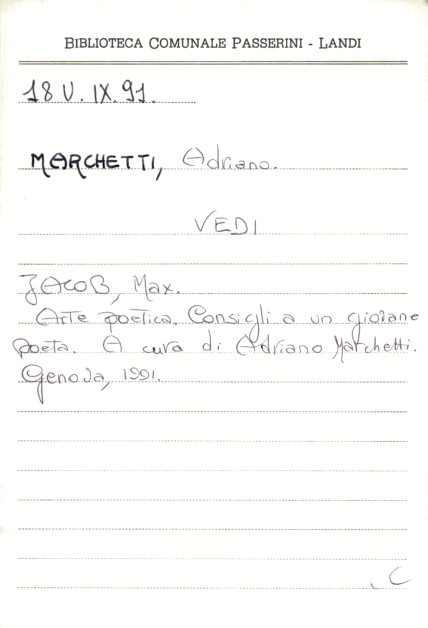 BIBLIOTECA COMUNALE PASSERINI - LANDI
18 V. IX. 91.
MARCHETTI, Adriano.
VEDI
JACOB, Max.
Arte poetica. Consigli a un giovane
poeta. A cura di Adriano Marchetti.
Genova, 1991.
C